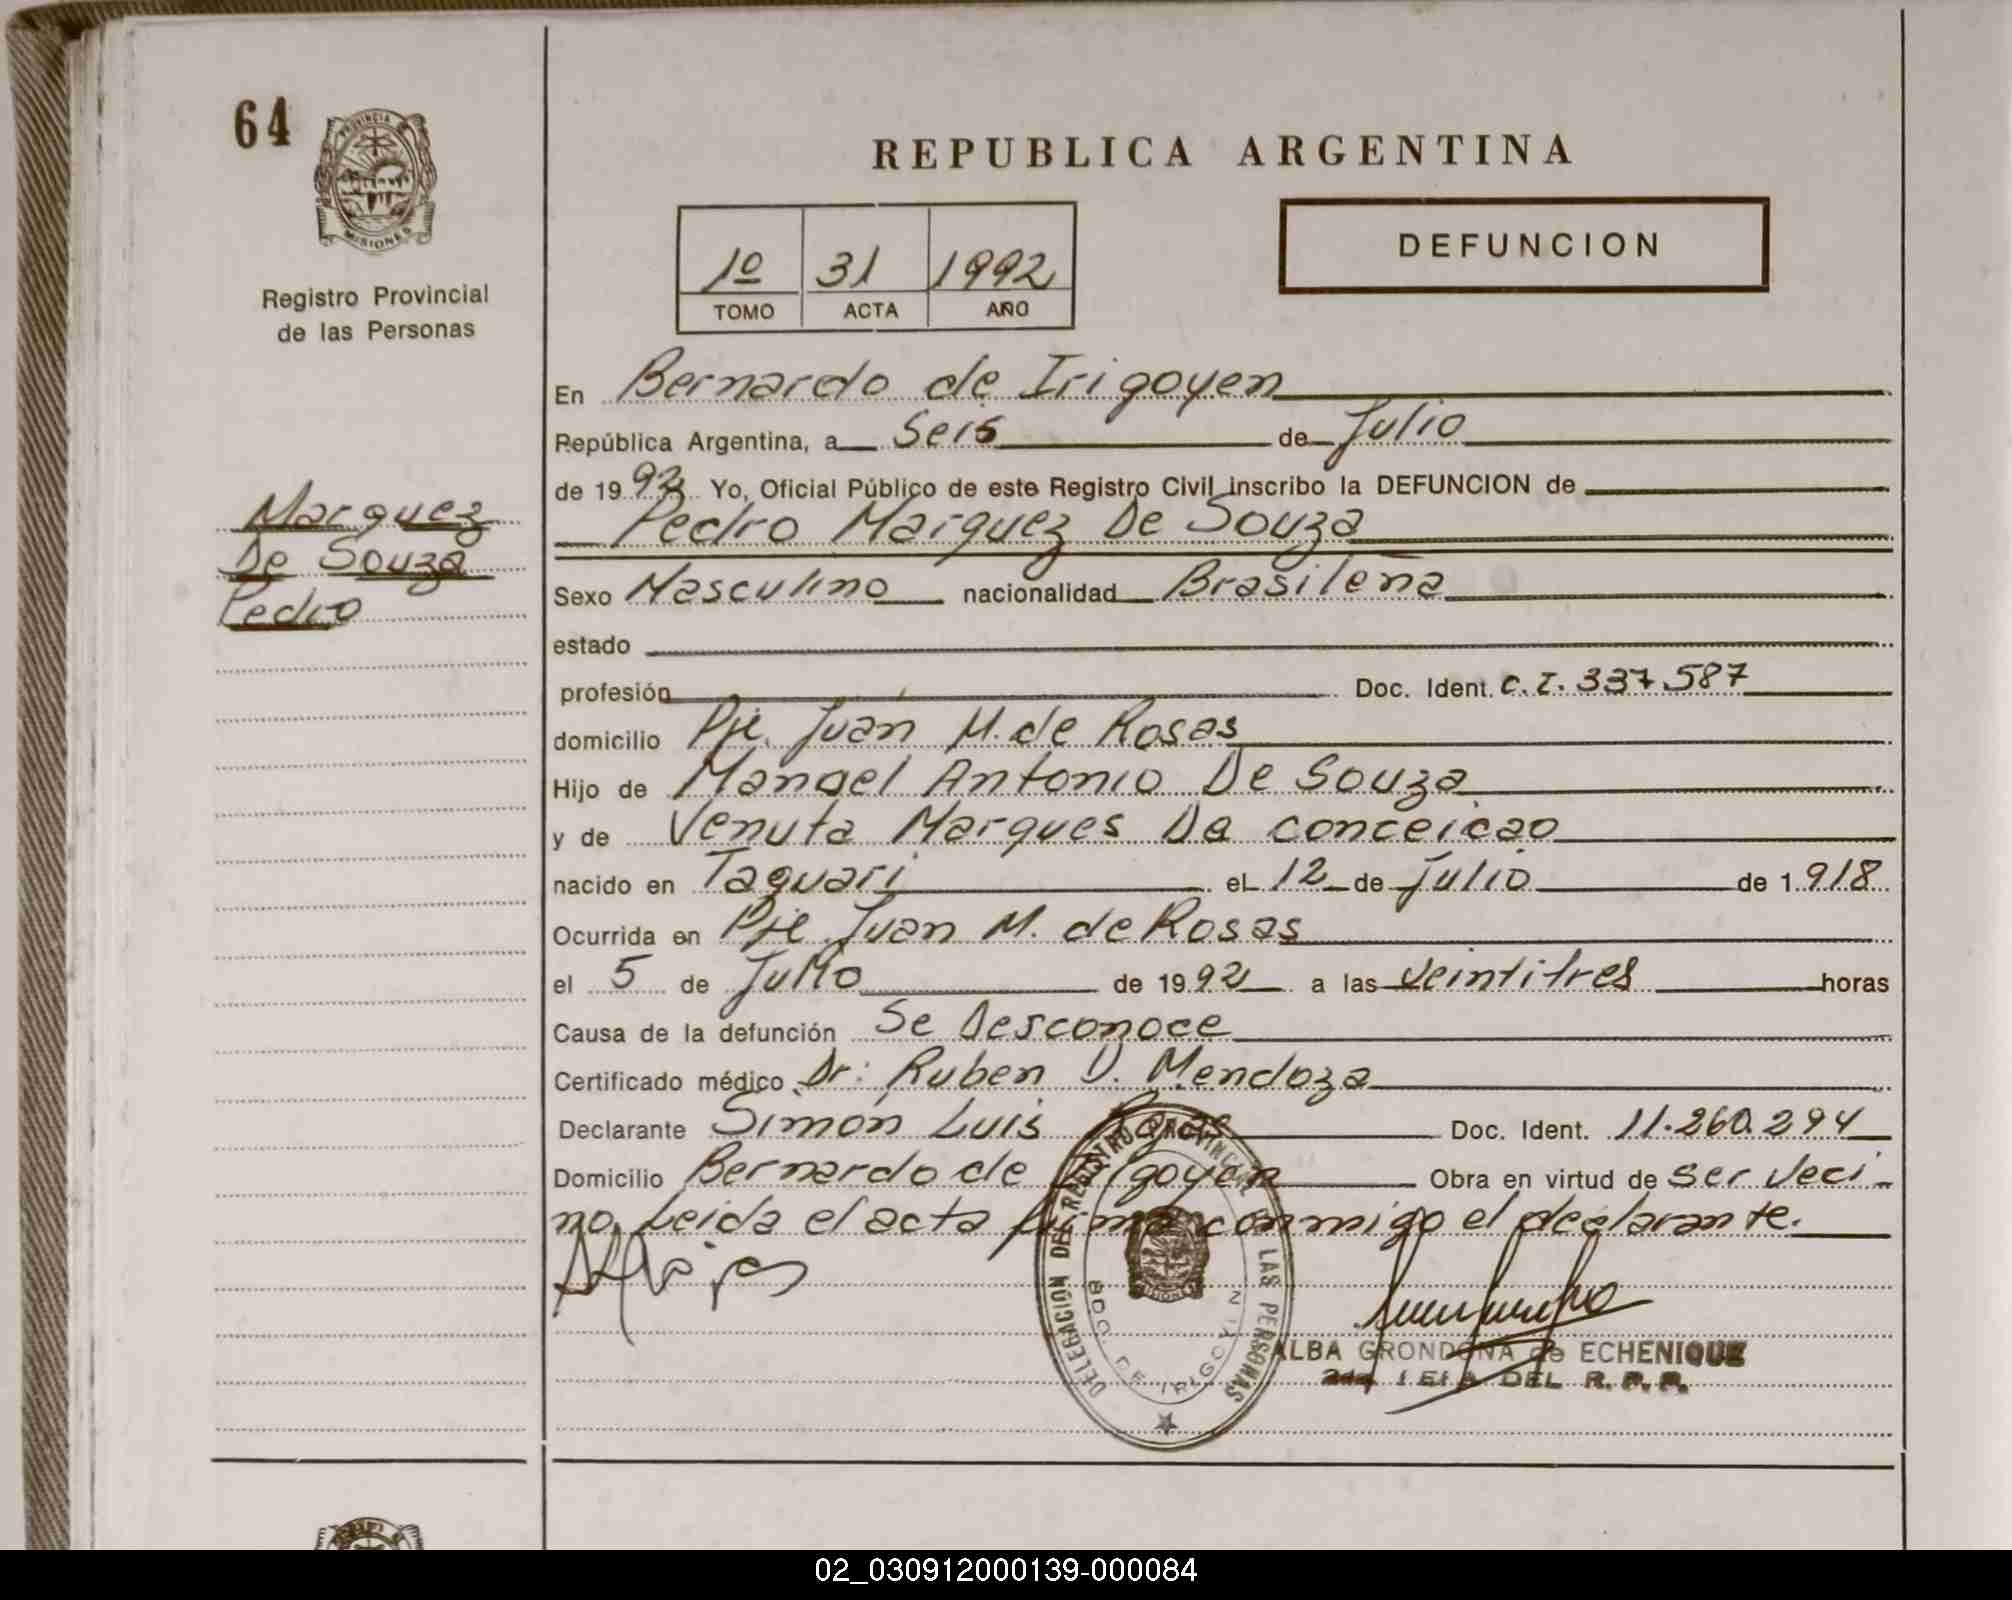 64
PROVINCIA DE
MISIONES
Registro Provincial
de las Personas
Marquez
De Souza
Pedro
REPUBLICA ARGENTINA
1º 31 1992
TOMO ACTA AÑO
DEFUNCION
En Bernardo de Irigoyen
República Argentina, a Seis de Julio
de 1992 Yo, Oficial Público de este Registro Civil inscribo la DEFUNCION de
Pedro Marquez De Souza
Sexo Masculino nacionalidad Brasileña
estado
profesión Doc. Ident. C.I. 337.587
domicilio Pje. Juan M. de Rosas
Hijo de Manoel Antonio De Souza
y de Venuta Marques Da conceicao
nacido en Taquari el 12 de Julio de 1918
Ocurrida en Pje. Juan M. de Rosas
el 5 de Julio de 1992 a las veintitres horas
Causa de la defunción Se Desconoce
Certificado médico Dr: Ruben D. Mendoza
Declarante Simón Luis Doc. Ident. 11.260.294
Domicilio Bernardo de Irigoyen Obra en virtud de ser veci-
no, Leida el acta firma conmigo el declarante.
DELEGACION DEL REGISTRO PROVINCIAL DE LAS PERSONAS
BDO. DE IRIGOYEN
MISIONES
ALBA GRONDONA de ECHENIQUE
DEL R.P.P.
02_030912000139-000084